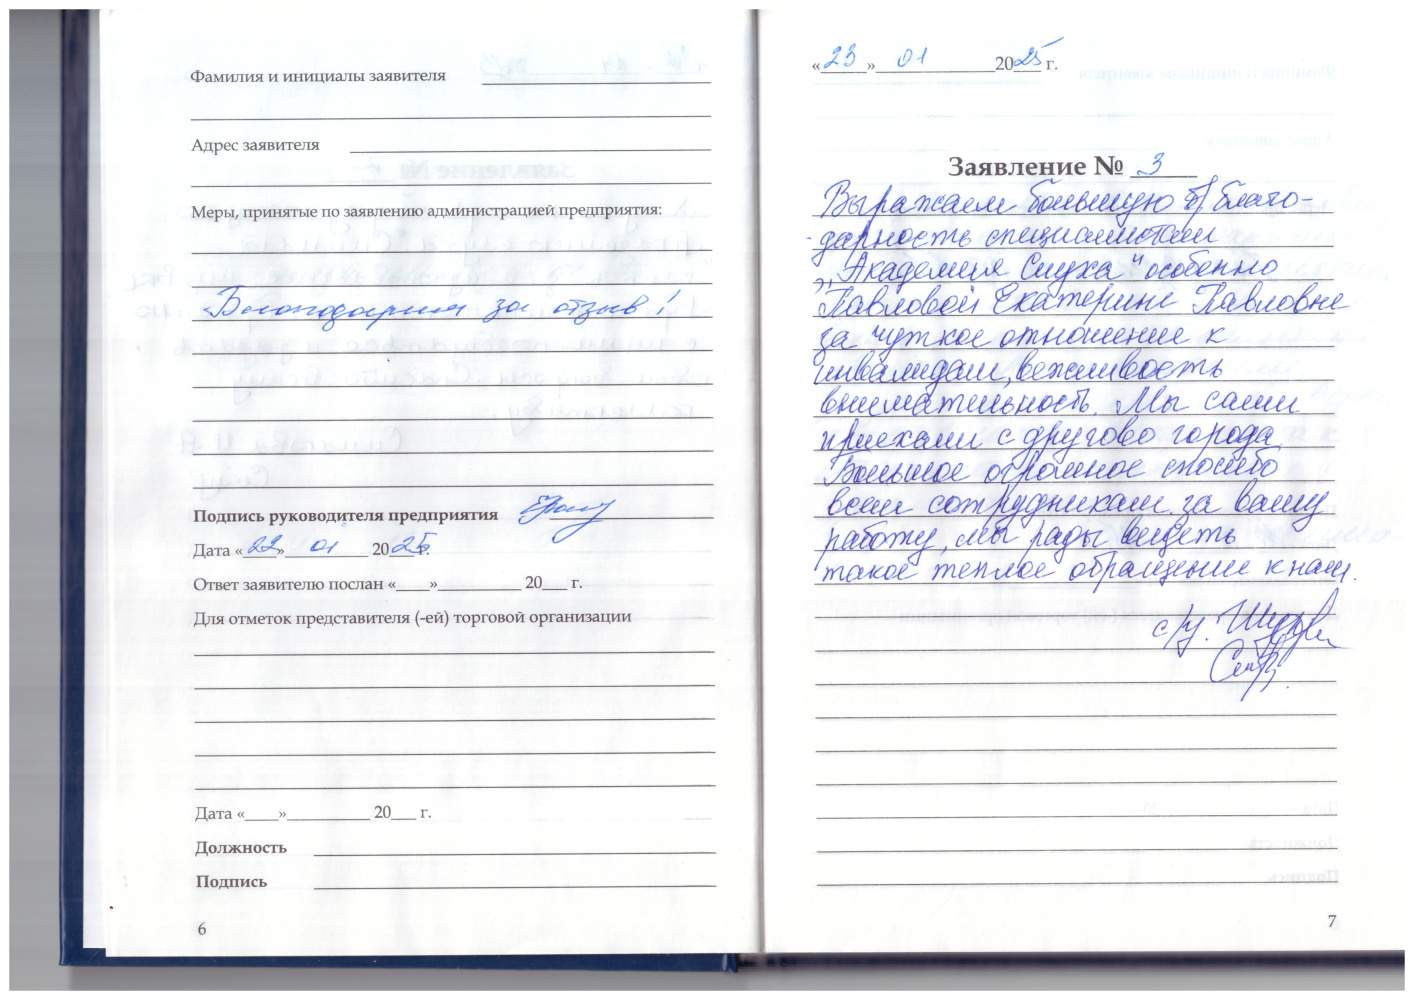 Фамилия и инициалы заявителя
Адрес заявителя
Меры, принятые по заявлению администрацией предприятия:
Благодарим за отзыв!
Подпись руководителя предприятия
Дата «22» 01 2025г.
Ответ заявителю послан «____»__________ 20___ г.
Для отметок представителя (-ей) торговой организации
Дата «____»__________ 20___ г.
Должность
Подпись
6
«23» 01 2025 г.
Заявление № 3
Выражаем большую благо-
дарность специалистам
„Академия Слуха" особенно
Павловой Екатерине Павловне
за чуткое отношение к
инвалидам, вежливость
внимательность. Мы сами
приехали с другово города.
Большое огромное спасибо
всем сотрудникам за вашу
работу, мы рады видеть
такое теплое обращение к нам.
с/у.
7